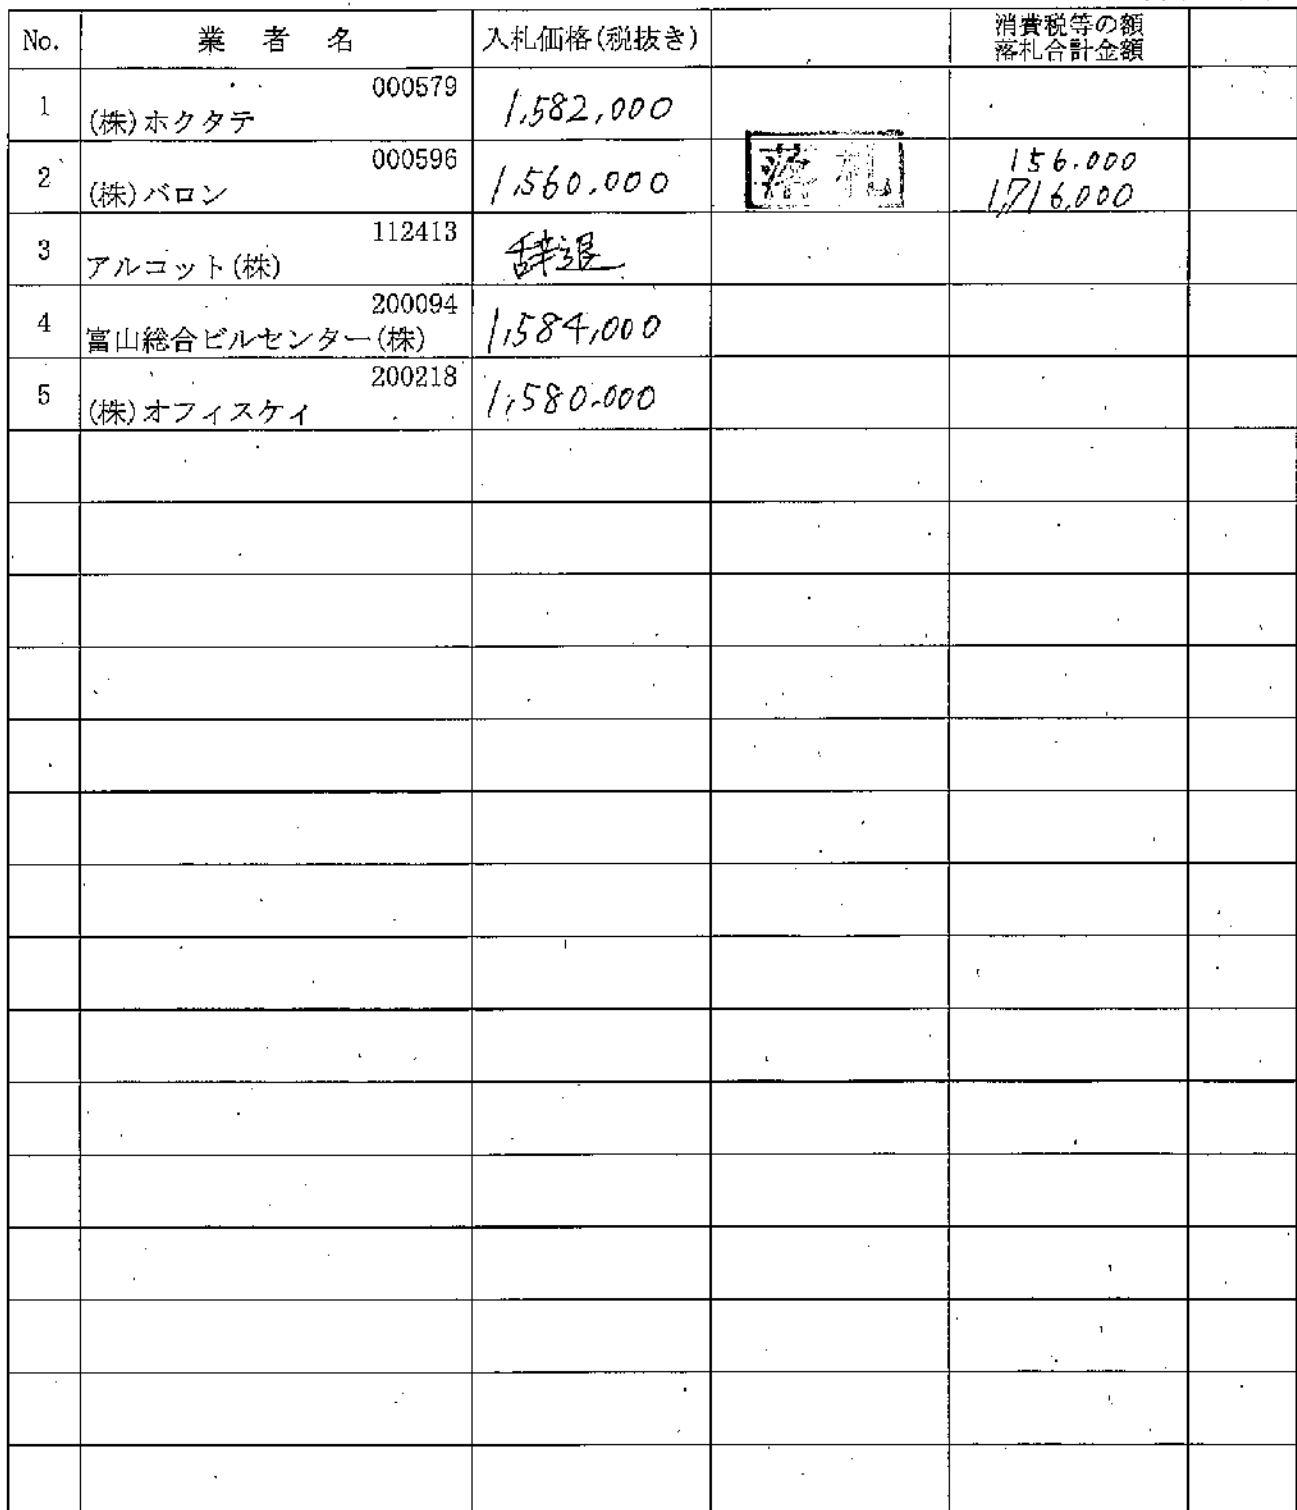 No. 業 者 名 入札価格(税抜き) 消費税等の額
落札合計金額
000579
1 (株)ホクタテ 1,582,000
000596
2 (株)バロン 1,560.000 落札 156.000
1,716,000
112413
3 アルコット(株) 辞退
200094
4 富山総合ビルセンター(株) 1,584,000
200218
5 (株)オフィスケイ 1,580.000